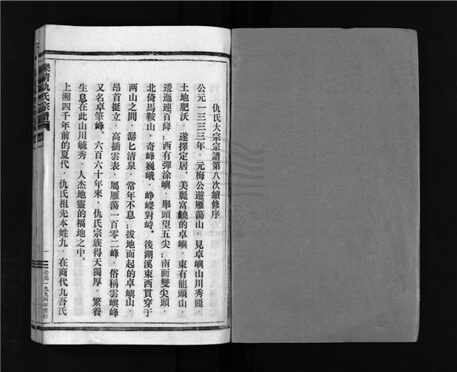 仇氏大宗宗譜第八次續修序
公元一三三二年，元梅公遊雁蕩山，見卓嶼山川秀麗，
土地肥沃，遂擇定居。美麗富饒的卓嶼，東有龍頭山，
逶迤連百峰；西有彈涂嶼，舉頭望五尖；南面雙尖頭，
北倚馬鞍山，奇峰巍峨，崢嶸對峙。後湖溪東西貫穿于
兩山之間，漏匕清泉，常年不息；拔地而起的卓嶼山，
昂首挺立，高插雲表，屬雁蕩一百零二峰，俗稱雲嶼峰
又名卓筆峰，六百六十年來，仇氏宗族得天獨厚，繁養
生息在此山川毓秀，人杰地靈的福地之中。
上溯四千年前的夏代，仇氏祖先本姓九，在商代九吾氏
樂清仇氏宗譜
一
公元一九九四年